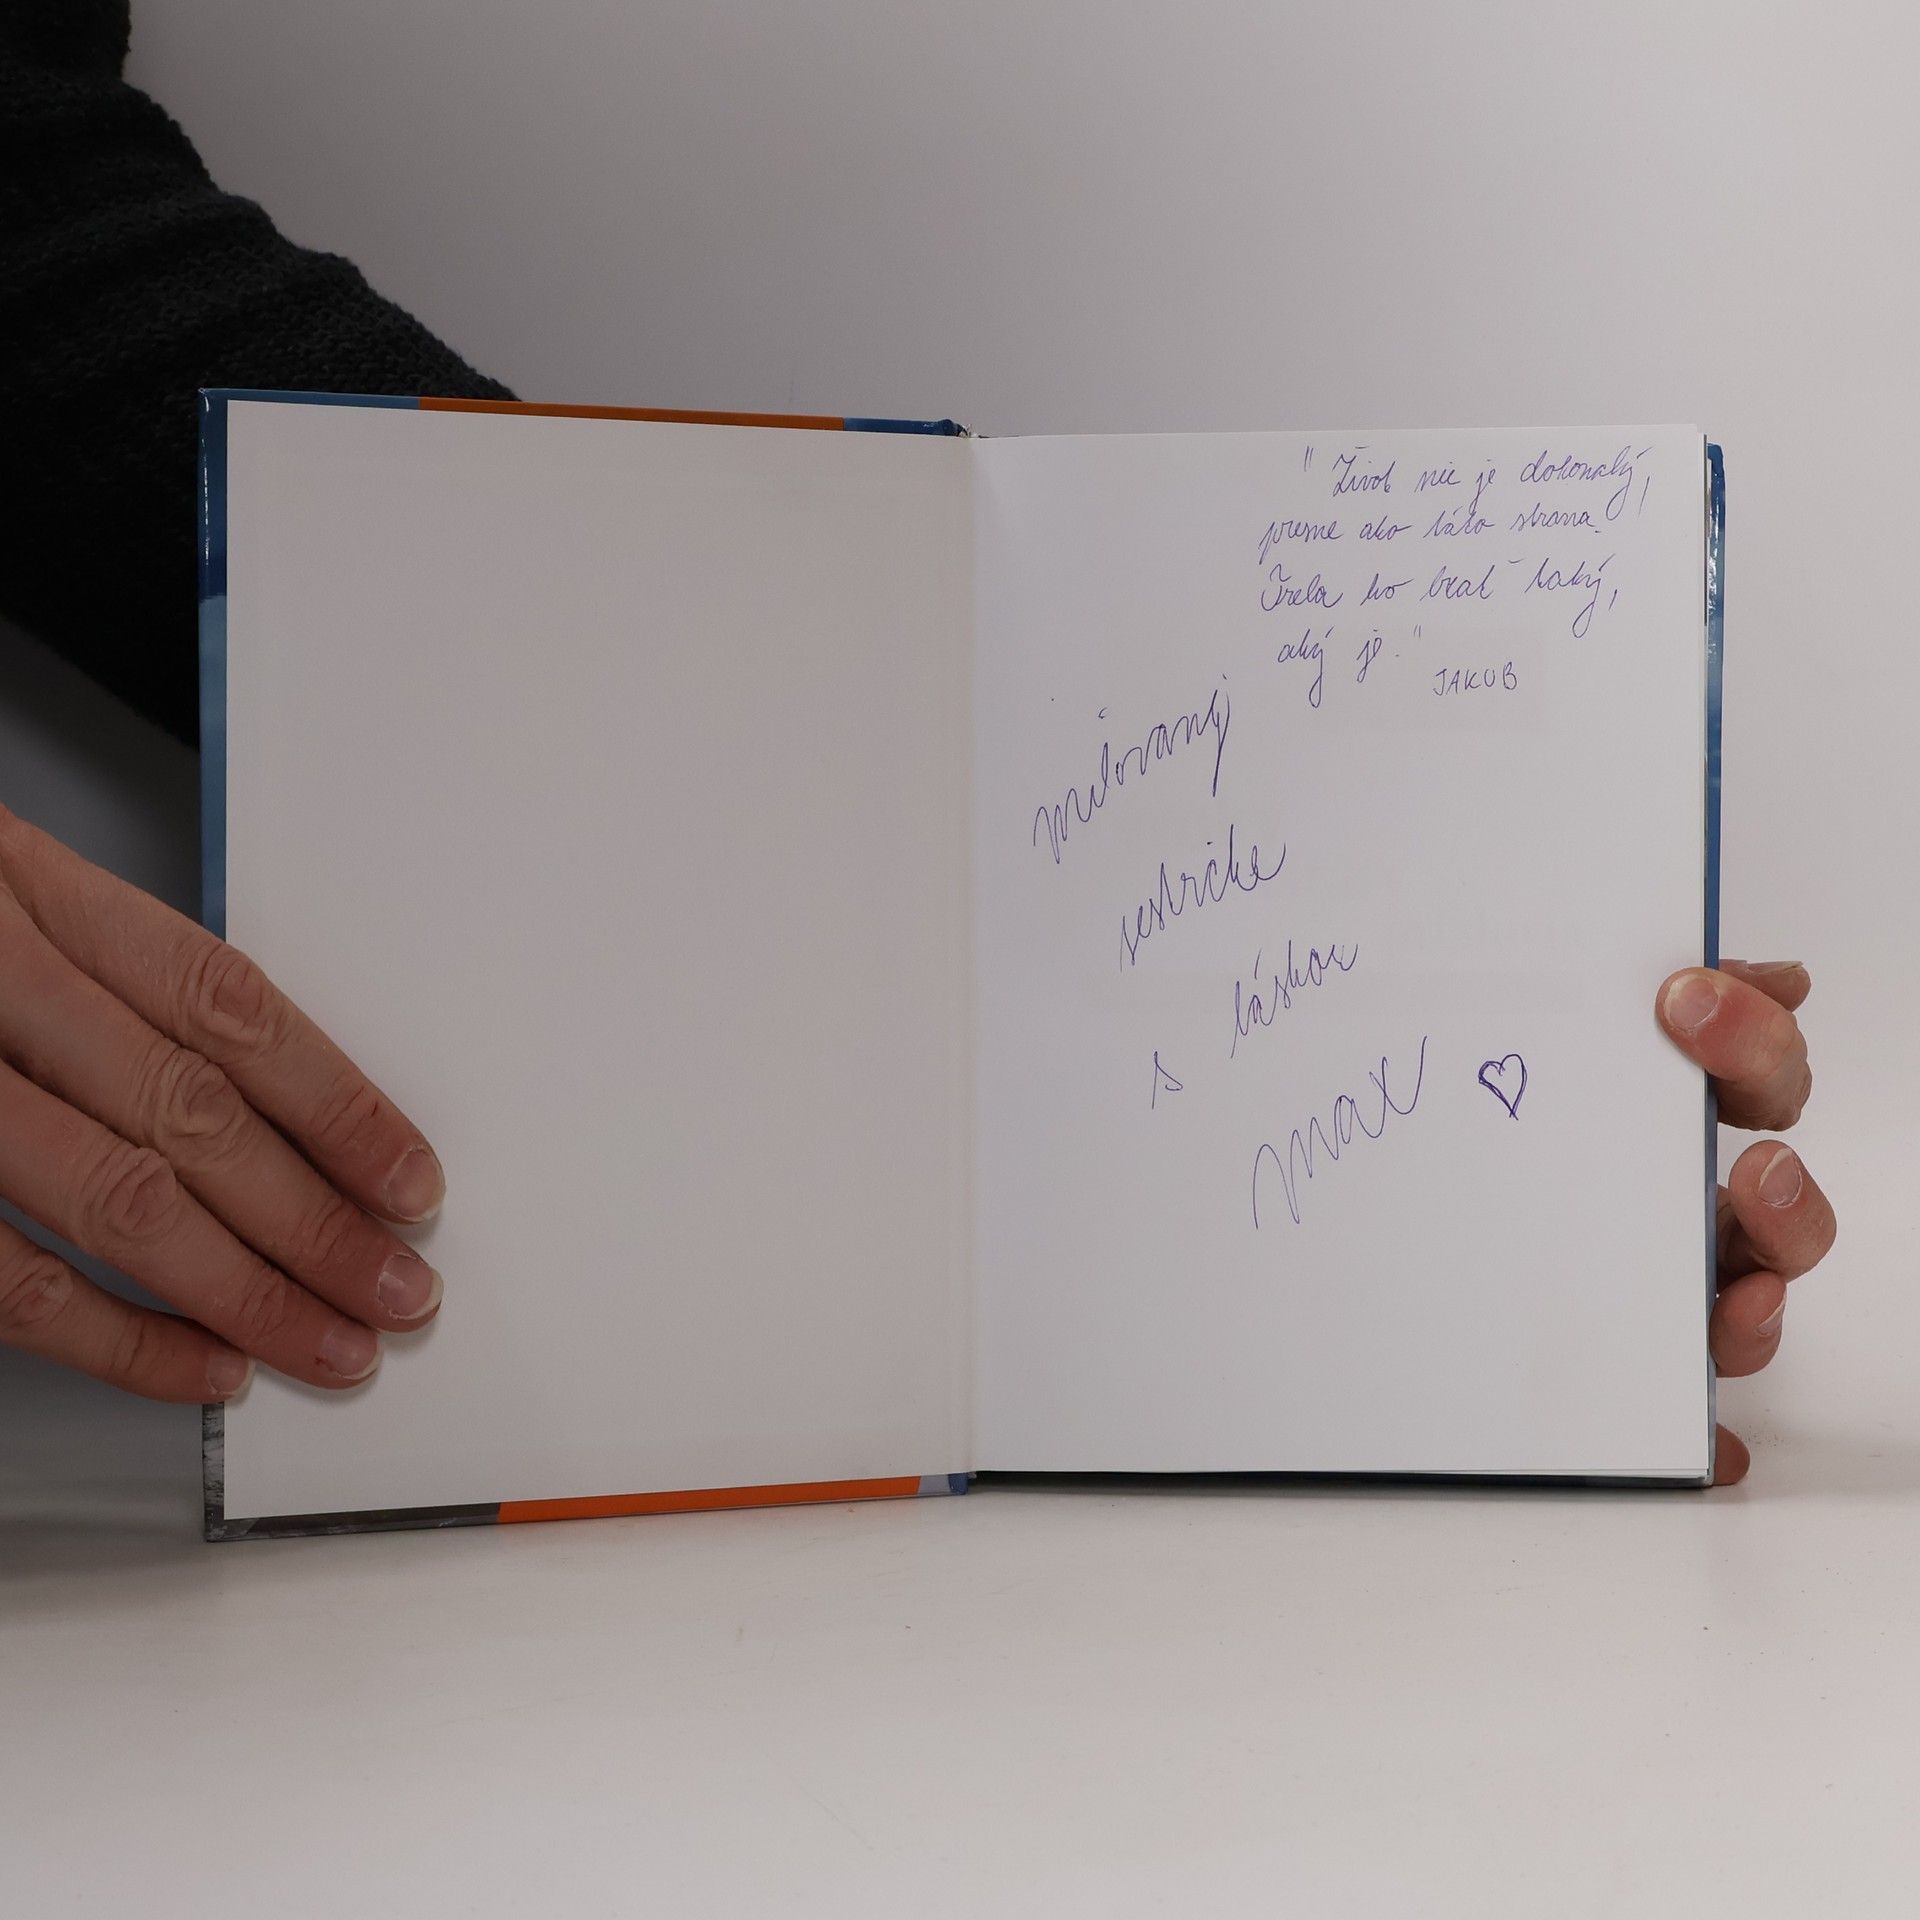 "Život nie je dokonalý,
presne ako táto strana.
Treba ho brať taký,
aký je."
JAKUB
milovanej
sestričke
s láskou
Max